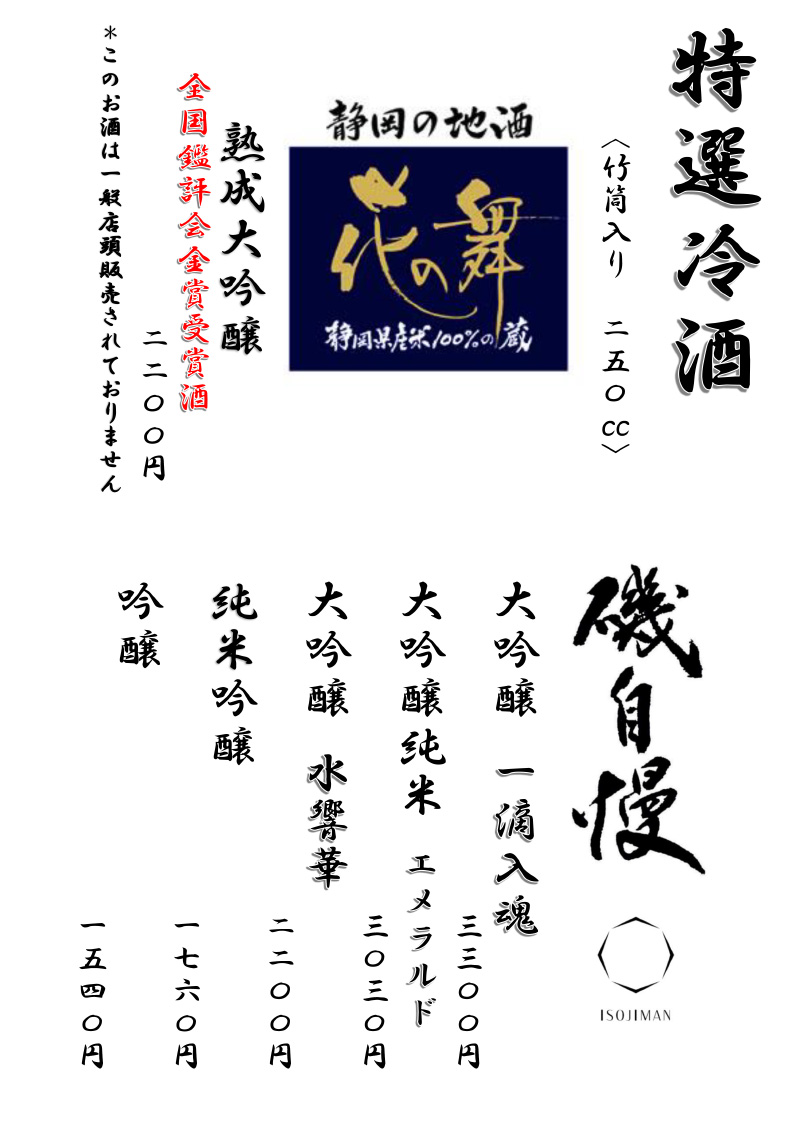 特選冷酒
〈竹筒入り 二五〇cc〉
静岡の地酒
花の舞
静岡県産米100%の蔵
熟成大吟醸
全国鑑評会金賞受賞酒
二二〇〇円
＊このお酒は一般店頭販売されておりません
磯自慢
ISOJIMAN
大吟醸 一滴入魂
三三〇〇円
大吟醸純米 エメラルド
三〇三〇円
大吟醸 水響華
二二〇〇円
純米吟醸
一七六〇円
吟醸
一五四〇円